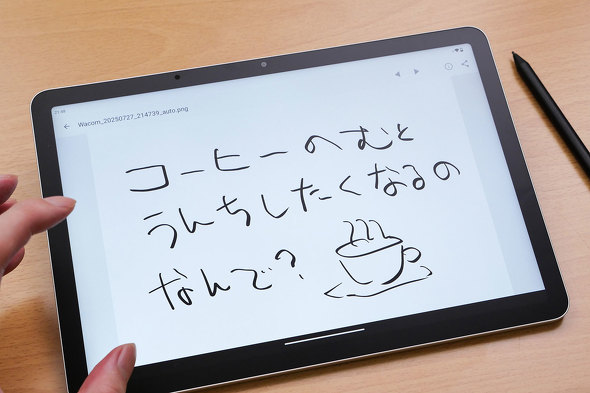 21:48
Wacom_20250727_214739_auto.png
コーヒーのむと
うんちしたくなるの
なんで?